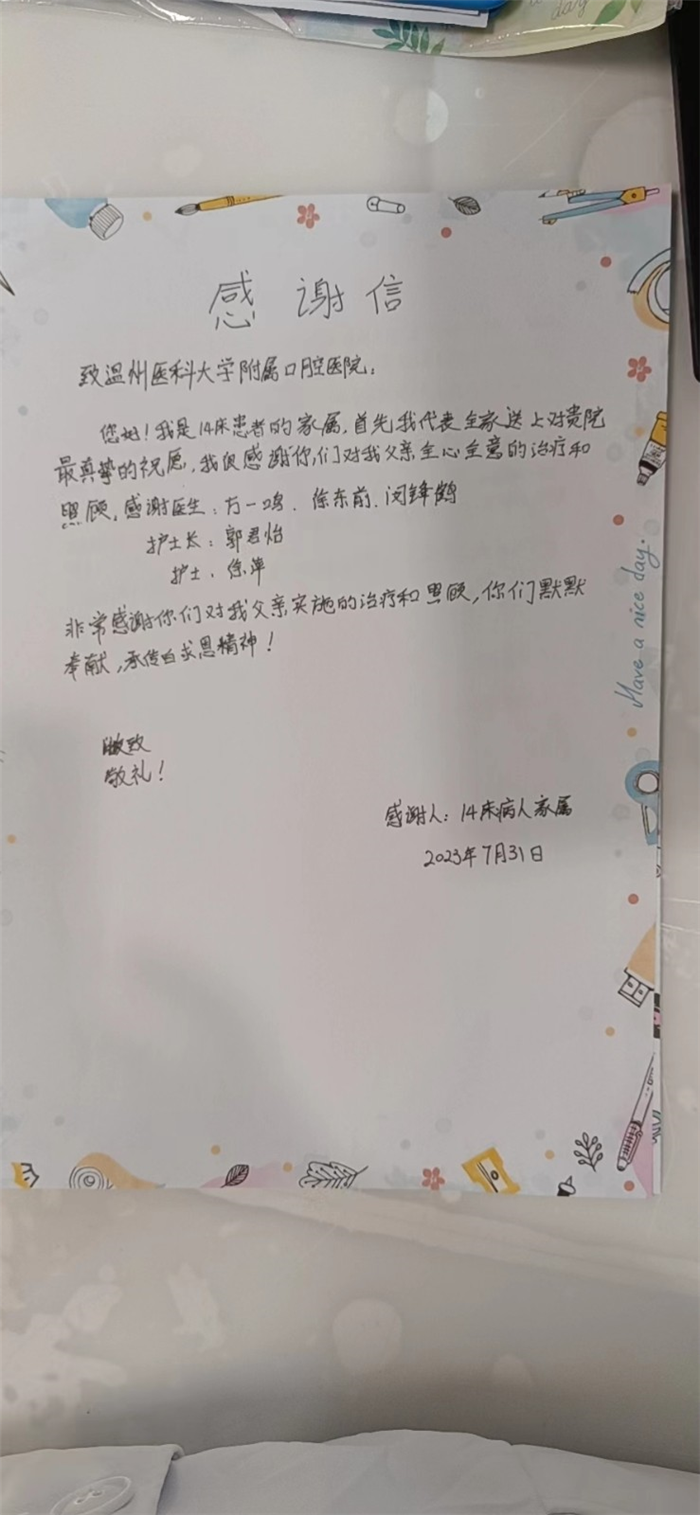 day
感谢信
致温州医科大学附属口腔医院:
您好!我是14床患者的家属,首先我代表全家送上对贵院
最真挚的祝愿,我很感谢你们对我父亲全心全意的治疗和
照顾,感谢医生:方一鸣、徐东前、闵锋鹤
护士长:郭君怡
护士:徐萍
非常感谢你们对我父亲实施的治疗和照顾,你们默默
奉献,承传白求恩精神!
Have a nice day.
致
敬礼!
感谢人:14床病人家属
2023年7月31日